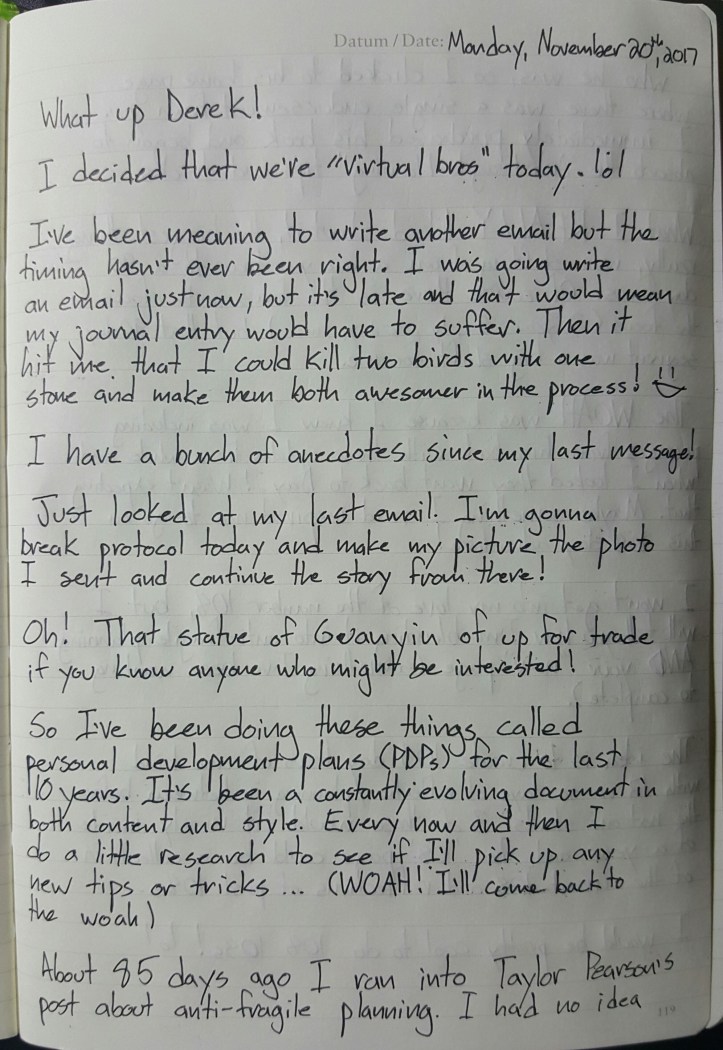 Datum / Date: Monday, November 20th, 2017
What up Derek!
I decided that we're "virtual bros" today. lol
I've been meaning to write another email but the
timing hasn't ever been right. I was going write
an email just now, but it's late and that would mean
my journal entry would have to suffer. Then it
hit me that I could kill two birds with one
stone and make them both awesomer in the process!
I have a bunch of anecdotes since my last message!
Just looked at my last email. I'm gonna
break protocol today and make my picture the photo
I sent and continue the story from there!
Oh! That statue of Guanyin of up for trade
if you know anyone who might be interested!
So I've been doing these things called
personal development plans (PDPs) for the last
10 years. It's been a constantly evolving document in
both content and style. Every now and then I
do a little research to see if I'll pick up any
new tips or tricks ... (WOAH! I'll come back to
the woah)
About 85 days ago I ran into Taylor Pearson's
post about anti-fragile planning. I had no idea
119